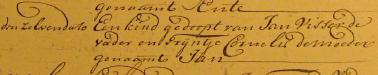 genaamt
den zelven dato Een kind gedoopt van Jan Visser de
vader en Sijntje Cornelis de moeder
genaamt Jan